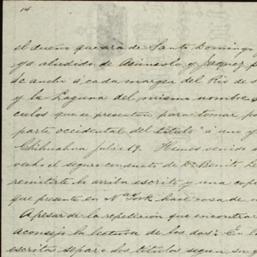 14
el dueño queda de Santo Domingo
ya aludido de Asúnsolo y
de ancho a cada margen del Rio de
y la Laguna del mismo nombre
culos que se presentan para tomar
parte occidental del título a uno y
Chihuahua julio 19. Hemos venido
el seguro conducto de Dn Benito
remitirte lo arriba escrito y una
que puente en N. York hace cosa de
A pesar de la repetición que encontrar
aconsejo la lectura de los dos: En lo
escritos separo los títulos segun su